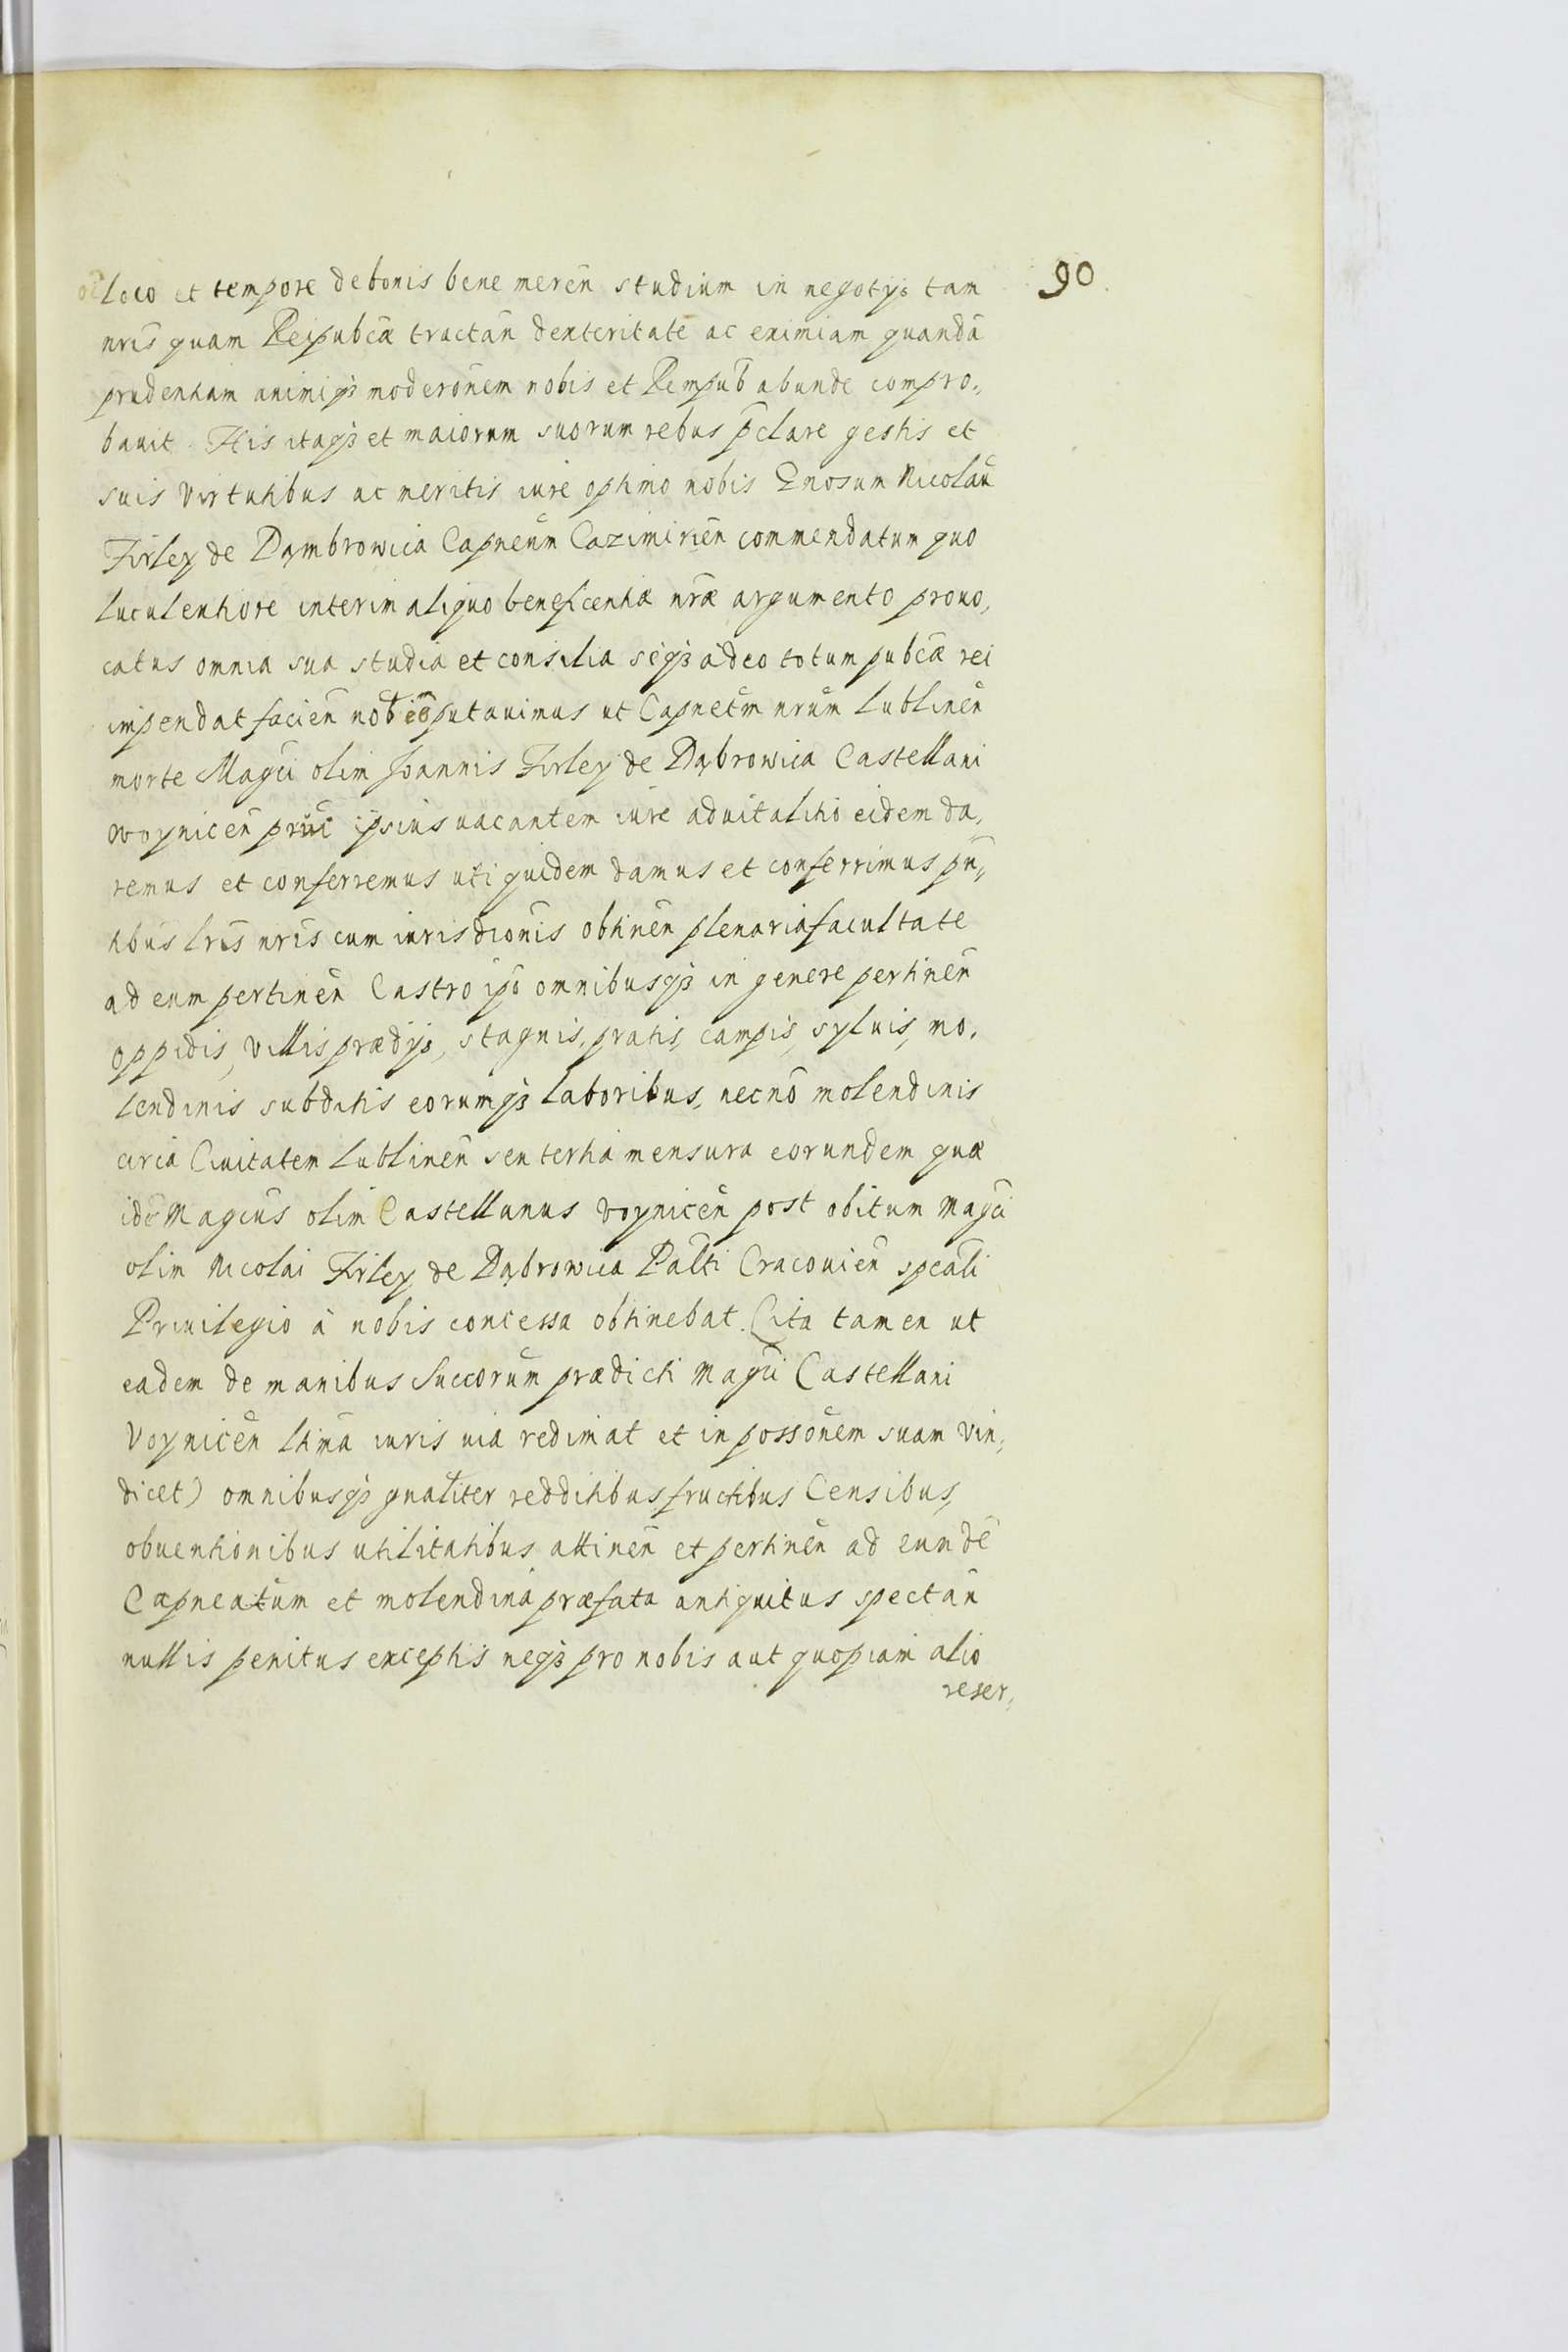 90.
loco et tempore de bonis bene meren̄ studium in negotijs tam
nr̄is quam Reipubcæ tractan̄ dexteritatē ac eximiam quandā
prudentiam animiq3 moderōnem nobis et Rempub̄ abunde compro„
bauit. His itaq3 et maiorum suorum rebus p̄clare gestis et
suis virtutibus ac meritis iure optimo nobis Gnosum Nicolaū
Firley de Dąmbrowica Capneūm Cazimirien̄ commendatum quo
luculentiore interim aliquo beneficentiæ nr̄æ argumento prouo„
catus omnia sua studia et consilia seq3 adeo totum pubcæ rei
impendat facien̄ nob̄ putauimus ut Capneтm̄ nrūm Lublinen̄
morte Magci olim Joannis Firley de Dąbrowica Castellani
woynicen̄ ipsius uacantem iure aduitalitio eidem da„
remus et conferremus uti quidem damus et conferrimus pn̄„
tibus lr̄is nr̄is cum iurisdiōnis obtinen̄ plenaria facultate
ad eum pertinen̄ Castro ipō omnibusq3 in genere pertinen̄
oppidis, villis prædijs, stagnis, pratis, campis, syluis, mo„
lendinis subditis eorumq3 laboribus, necnō molendinis
circa Ciuitatem Lublinen̄ seu tertia mensura eorundem quæ
idē Magcus olim Castellanus voynicen̄ post obitum Magci
olim Nicolai Firley de Dąbrowica Palti Cracouien̄ speāli
Priuilegio à nobis concessa obtinebat. (ita tamen ut
eadem de manibus Succorūm prædicti Magci Castellani
Voynicen̄ ltima iuris uia redimat et in possōnem suam vin„
dicet) omnibusq3 gnaliter redditibus, fructibus Censibus,
obuentionibus utilitatibus attinen̄ et pertinen̄ ad eundē
Capneatūm et molendina præfata antiquitus spectan̄
nullis penitus exceptis neq3 pro nobis aut quopiam alio
reser„